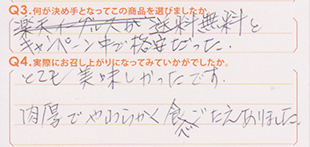 Q3.何が決め手となってこの商品を選びましたか。
送料無料と
キャンペーン中で格安だった.
Q4.実際にお召し上がりになってみていかがでしたか。
とても美味しかったです.
肉厚でやわらかく食べごたえありました.